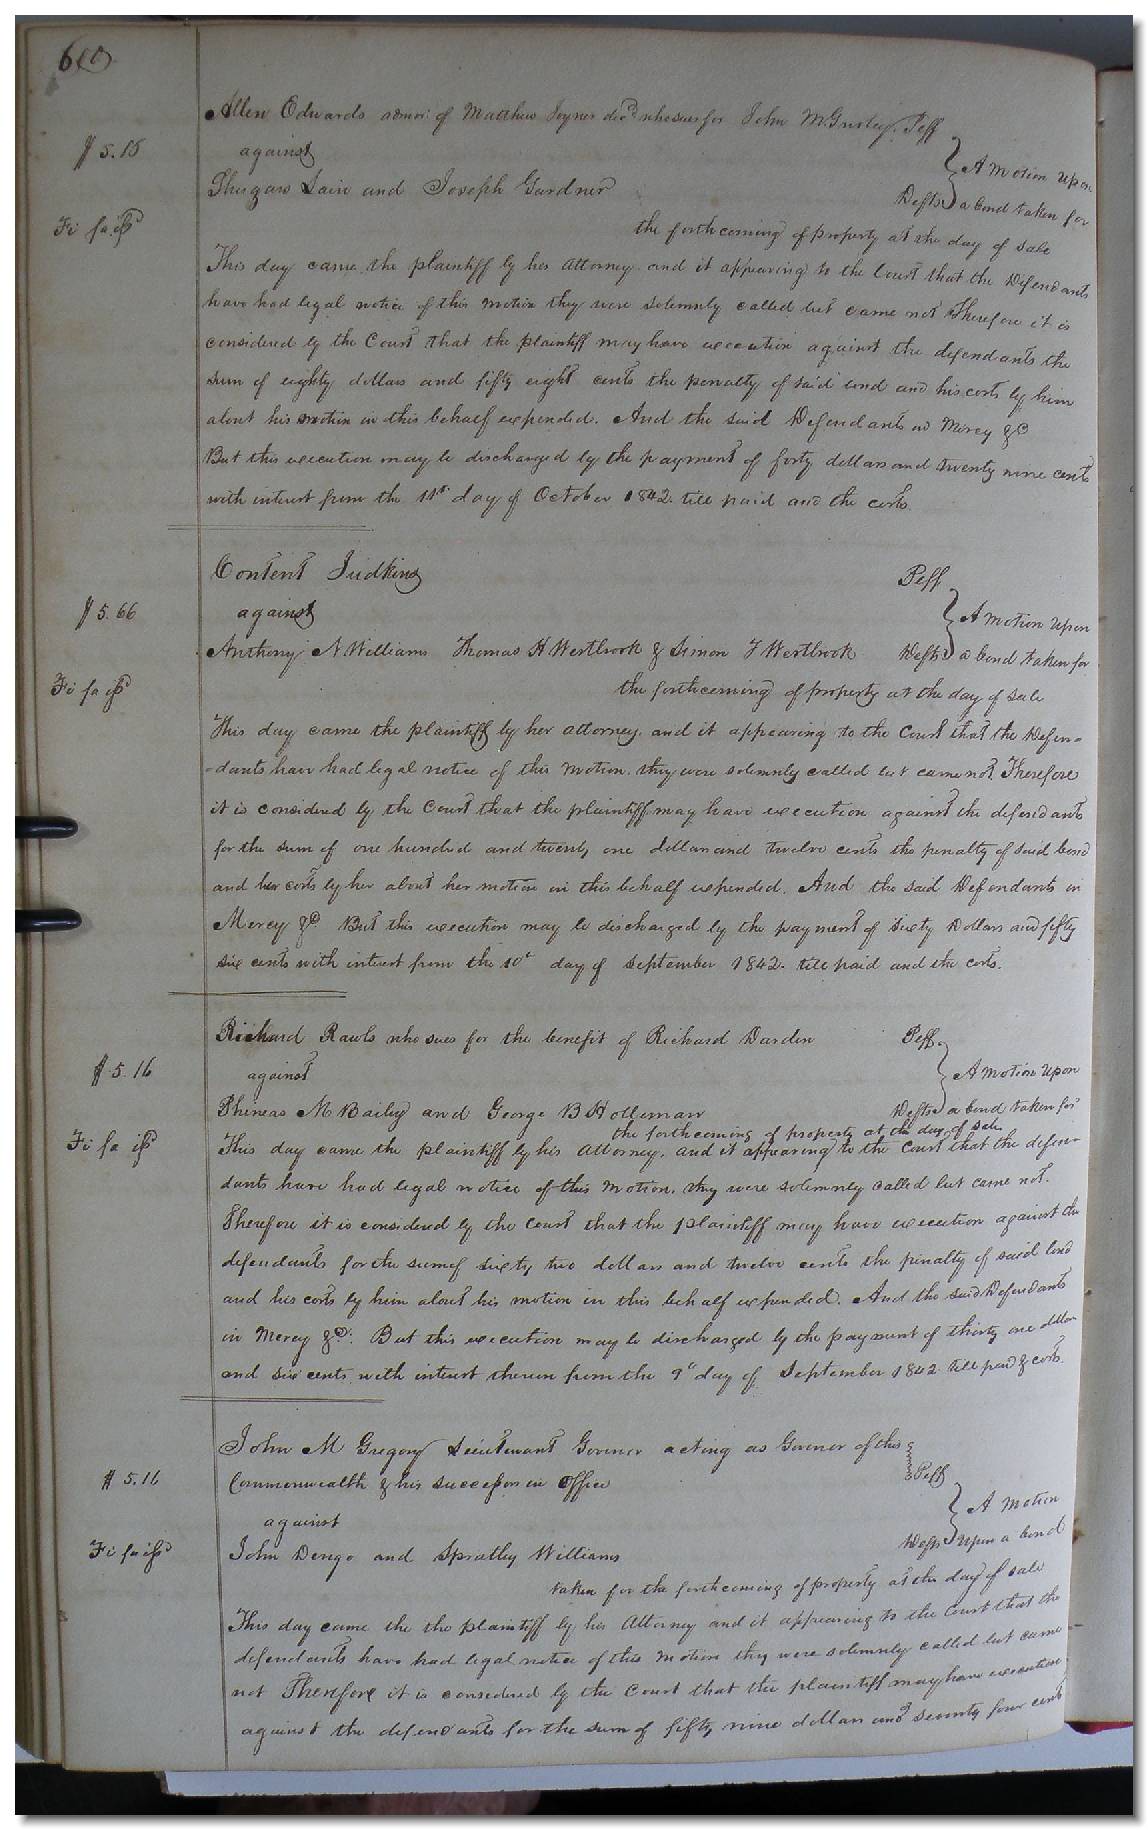 Allen Edwards admor. of Matthew Joyner decd who sues for John Plff
$ 5.16
against
A motion upon
and Joseph Gardner Defts a bond taken for
Fi fa iss
the forthcoming of property at the day of sale
This day came the plaintiff by his attorney and it appearing to the Court that the Defendants
have had legal notice of this motion they were solemnly called but came not Therefore it is
considered by the Court that the plaintiff may have execution against the defendants the
sum of eighty dollars and fifty eight cents the penalty of said bond and his costs by him
about his motion in this behalf expended. And the said Defendants in Mercy &c
But this execution may be discharged by the payment of forty dollars and twenty nine cents
with interest from the 11th day of October 1842. till paid and the costs.
Content Judkins Plff
$ 5.66
against
A motion upon
Anthony N Williams Thomas H Westbrook & Simon T Westbrook Defts a bond taken for
Fi fa iss
the forthcoming of property at the day of sale
This day came the plaintiff by her attorney. and it appearing to the Court that the Defen-
-dants have had legal notice of this motion. they were solemnly called but came not. Therefore
it is considered by the Court that the plaintiff may have execution against the defendants
for the sum of one hundred and twenty one dollars and twelve cents the penalty of said bond
and her costs by her about her motion in this behalf expended. And the said Defendants in
Mercy &c. But this execution may be discharged by the payment of sixty Dollars and fifty
six cents with interest from the 10t day of September 1842. till paid and the costs.
Richard Rawls who sues for the benefit of Richard Darden Plff.
$ 5.16
against
A motion upon
Phineas M Bailey and George B Holleman Defts a bond taken for
the forthcoming of property at the day of sale
Fi fa iss
This day came the plaintiff by his attorney. and it appearing to the Court that the defen-
dants have had legal notice of this motion. they were solemnly called but came not.
Therefore it is considered by the Court that the plaintiff may have execution against the
defendants for the sum of sixty two dollars and twelve cents the penalty of said bond
and his costs by him about his motion in this behalf expended. And the said Defendants
in Mercy &c. But this execution may be discharged by the payment of thirty one dollar
and six cents. with interest thereon from the 9t day of September 1842 till paid & costs.
John M Gregory Lieutenant Govenor acting as Govenor of this
$ 5.16
Commonwealth & his successors in office Plff
against
A motion
John and Spratley Williams Defts upon a bond
Fi fa iss
taken for the forthcoming of property at the day of sale
This day came the the plaintiff by his attorney and it appearing to the Court that the
defendants have had legal notice of this motion they were solemnly called but came
not Therefore it is considered by the Court that the plaintiff may have execution
against the defendants for the sum of fifty nine dollars and seventy four cents